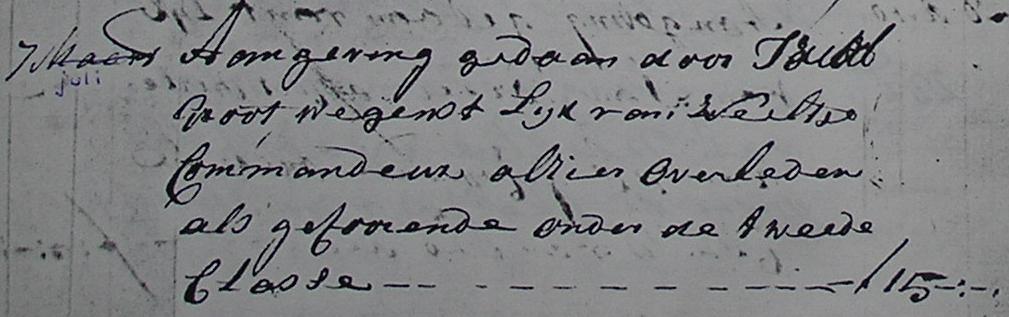 7 Maart Aamgeving gedaan door Jacob
juli
Groot wegens t Lyk van Weeltje
Commandeur alhier overleden
als gehoorende onder de tweede
Classe -- - - - - - - - - - f 15-:-.